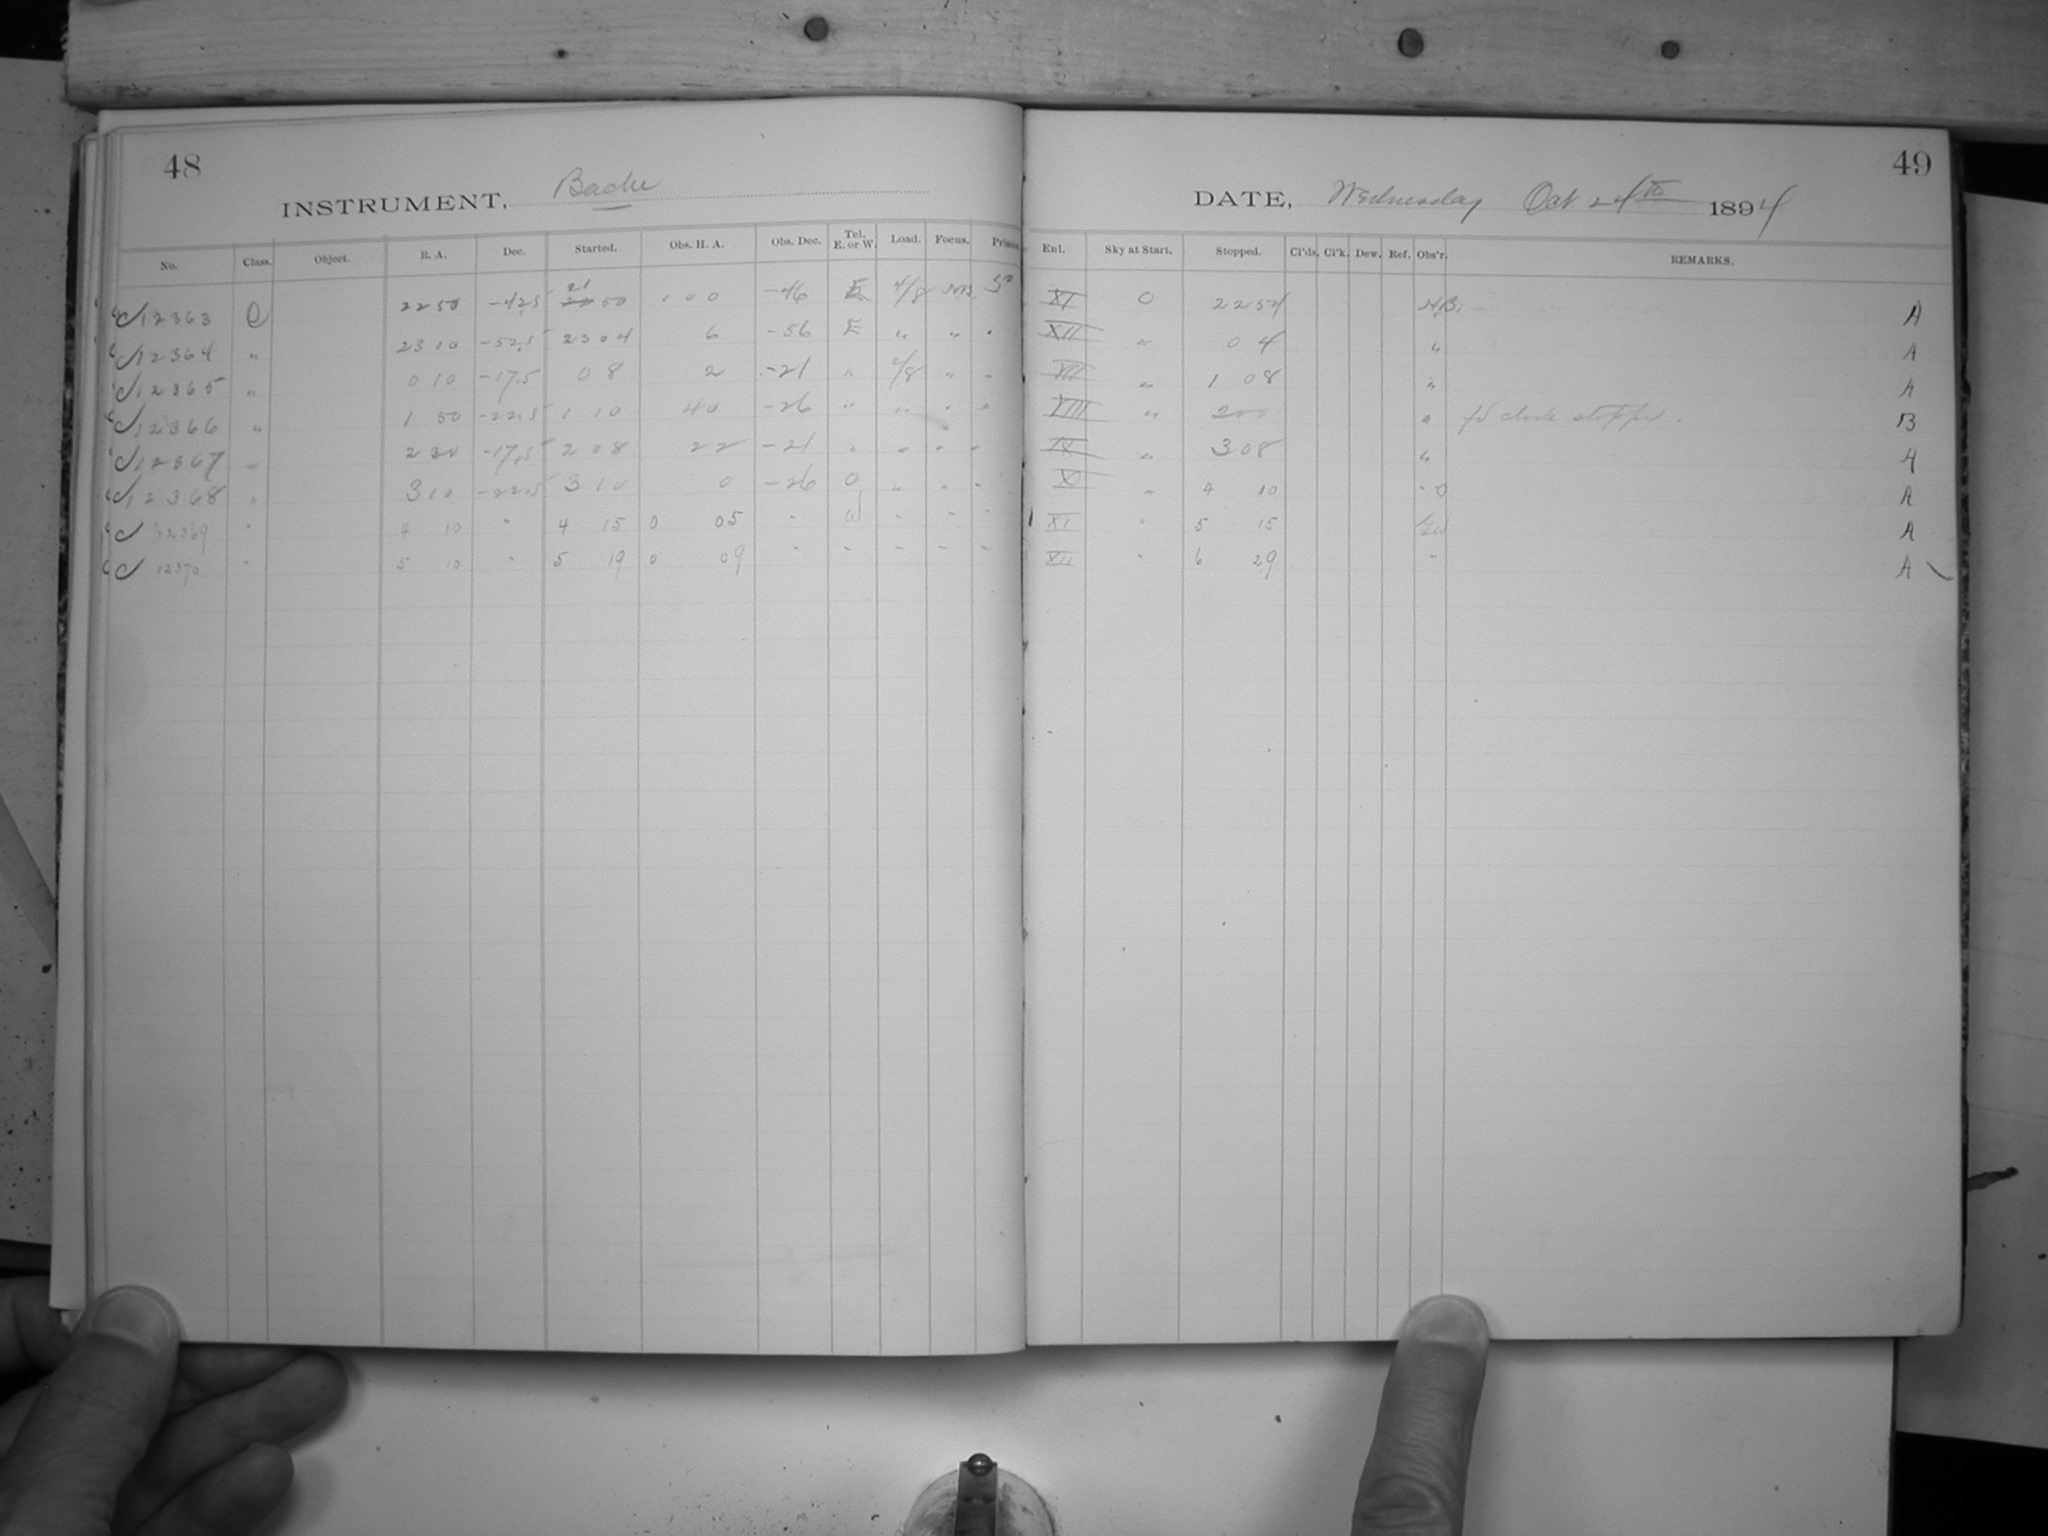 48
INSTRUMENT, Bache
No. Class. Object. R. A. Dec. Started. Obs. H. A. Obs. Dec. Tel. E. or W. Load. Focus.
12363 C 22 50 -42.5 21 00 1 00 -46 E 4/8
12364 " 23 10 -52.5 23 04 6 -56 E " " "
12365 " 0 10 -17.5 0 8 2 -21 " 2/8 " "
12366 " 1 50 -22.5 1 10 40 -26 " " " "
12367 " 2 30 -17.5 2 08 22 -21 " " " "
12368 " 3 10 -22.5 3 10 0 -26 " " "
12369 " 4 10 " 4 15 0 05 " W " " "
12370 " 5 10 " 5 19 0 09 " " " " "
49
DATE, Wednesday Oct 24th 1894
Enl. Sky at Start. Stopped. Cl'ds. Cl'k. Dew. Ref. Obs'r. REMARKS.
XI 0 22 54 A
XII " 0 4 " A
" 1 08 " A
XIII " 200 " clock stopped. B
IX " 308 " A
X " 4 10 A
XI " 5 15 A
XII " 6 29 " A